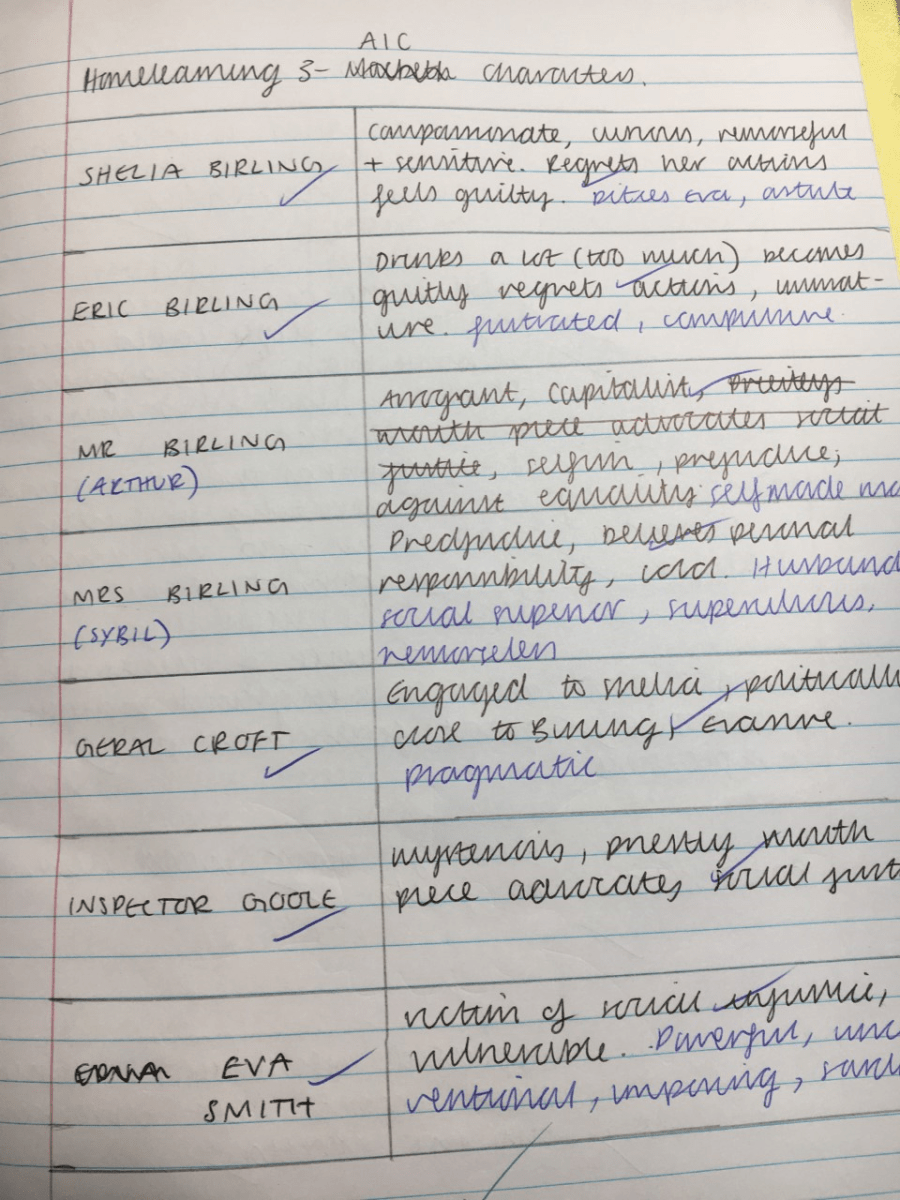 AIC
Homelearning 3- Macbeth characters.
SHELIA BIRLING
compassionate, curious, remorseful
+ sensitive. Regrets her actions
feels guilty. Pities Eva, astute
ERIC BIRLING
Drinks a lot (too much) becomes
guitly regrets actions, immat-
ure. frustrated, compulsive.
MR BIRLING
(ARTHUR)
Arrogant, capitalist, prieitys
mouth piece advocates social
justice, selfish, prejudice,
against equality self made ma
MRS BIRLING
(SYBIL)
Predjudice, believes personal
responsibility, cold. Husband
social superior, supercilious,
remorseless
GERAL CROFT
Engaged to Shelia, politically
close to Birling, Evasive.
pragmatic
INSPECTOR GOOLE
mysterious, priestly mouth
piece advocates, social just
EVA
SMITH
victim of social injustice,
vulnerable. Powerful, unc
ventional, imposing, sard